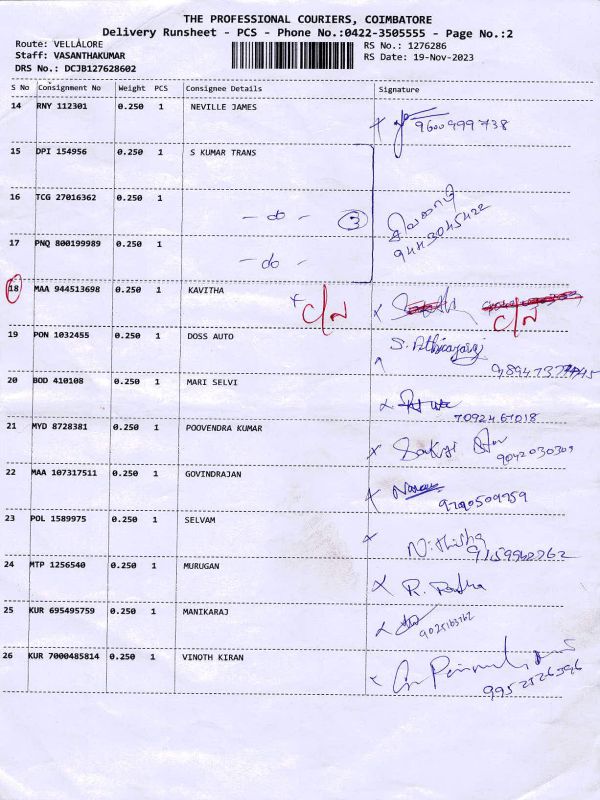 THE PROFESSIONAL COURIERS, COIMBATORE
Delivery Runsheet - PCS - Phone No.:0422-3505555 - Page No.:2
Route: VELLALORE
RS No.: 1276286
Staff: VASANTHAKUMAR
RS Date: 19-Nov-2023
DRS No.: DCJB127628602
S No Consignment No Weight PCS Consignee Details Signature
14 RNY 112301 0.250 1 NEVILLE JAMES
9600999738
15 DPI 154956 0.250 1 S KUMAR TRANS
16 TCG 27016362 0.250 1
- do - 3
9443045422
17 PNQ 800199989 0.250 1
- do -
18 MAA 944513698 0.250 1 KAVITHA
19 PON 1032455 0.250 1 DOSS AUTO
20 BOD 410108 0.250 1 MARI SELVI
7092461018
21 MYD 8728381 0.250 1 POOVENDRA KUMAR
9042030303
22 MAA 107317511 0.250 1 GOVINDRAJAN
23 POL 1589975 0.250 1 SELVAM
24 MTP 1256540 0.250 1 MURUGAN
25 KUR 695495759 0.250 1 MANIKARAJ
26 KUR 7000485814 0.250 1 VINOTH KIRAN